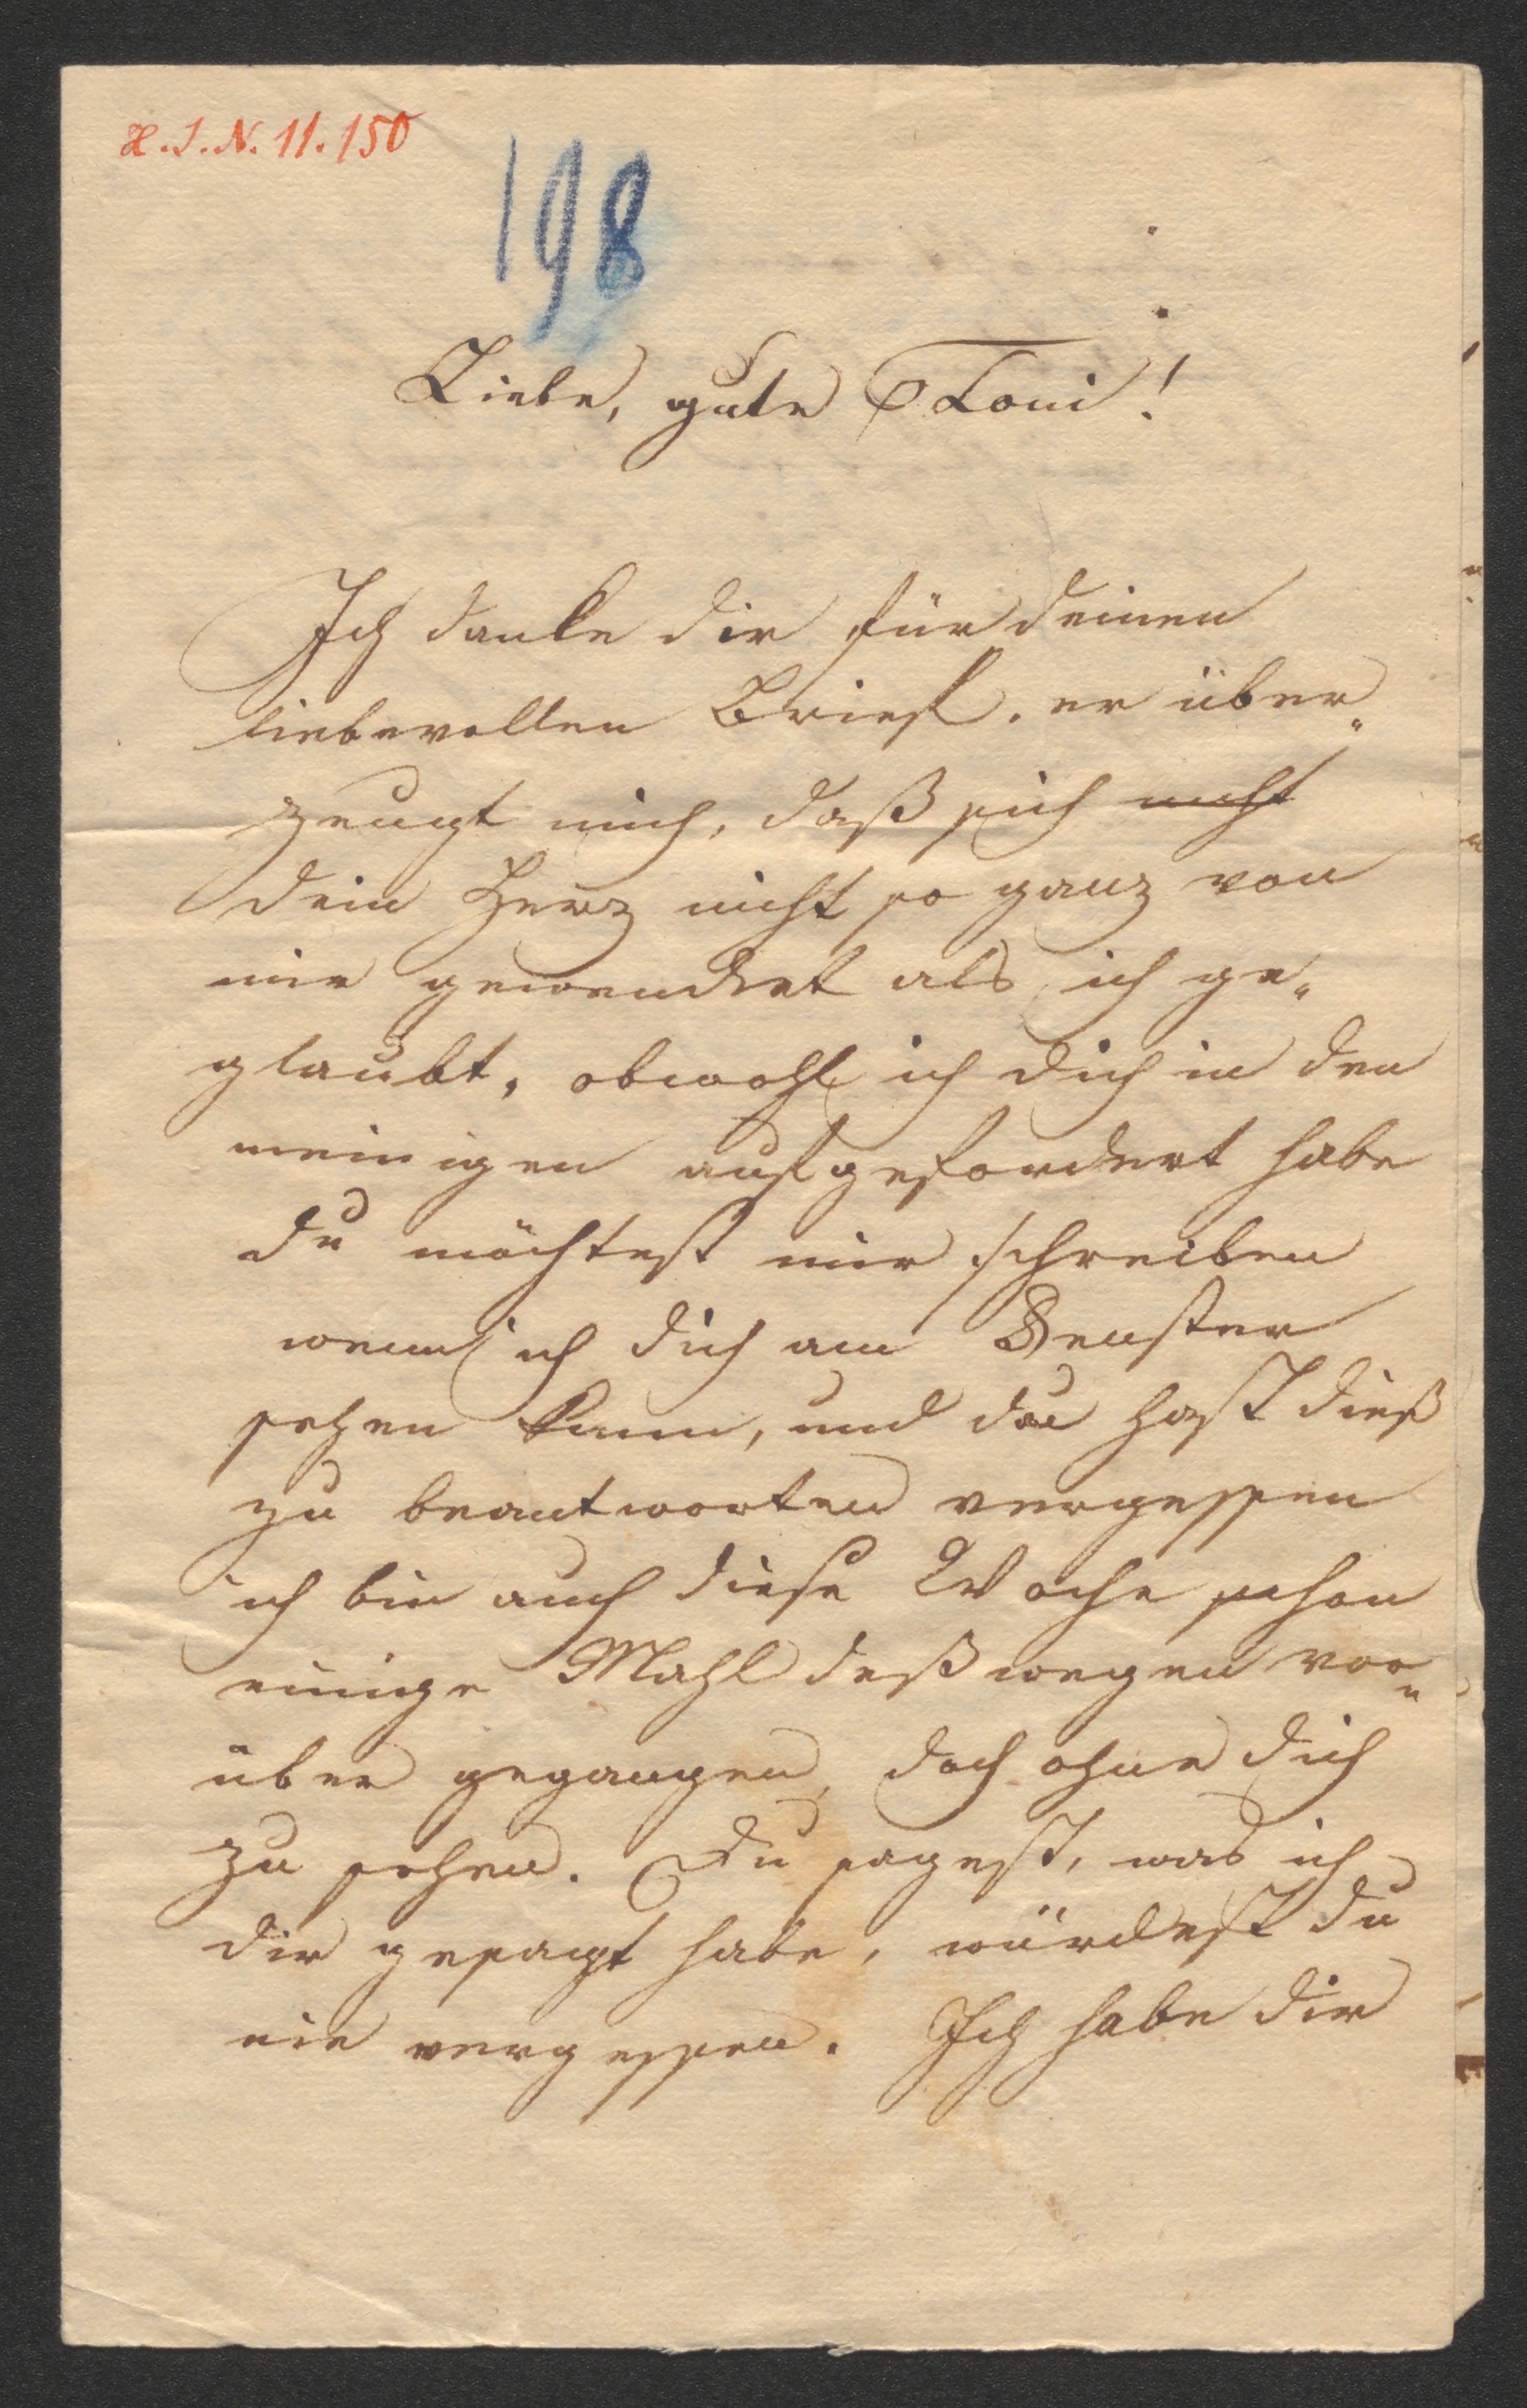 H.I.N. 11.150
198
Liebe, gute Toni!
Ich danke dir für deinen
liebevollen Brief. er über„
zeugt mich, daß sich nicht
dein Herz nicht so ganz von
mir gewendet als ich ge„
glaubt, obwohl ich dich in den
meinigen aufgefordert habe
du möchtest mir schreiben
wenn ich dich am Fenster
sehen kann, und du hast dieß
zu beantworten vergessen
ich bin auch diese Woche schon
einige Mahl deßwegen vor„
über gegangen, doch ohne dich
zu sehen. Du sagest, was ich
dir gesagt habe, würdest du
nie vergessen. Ich habe dir